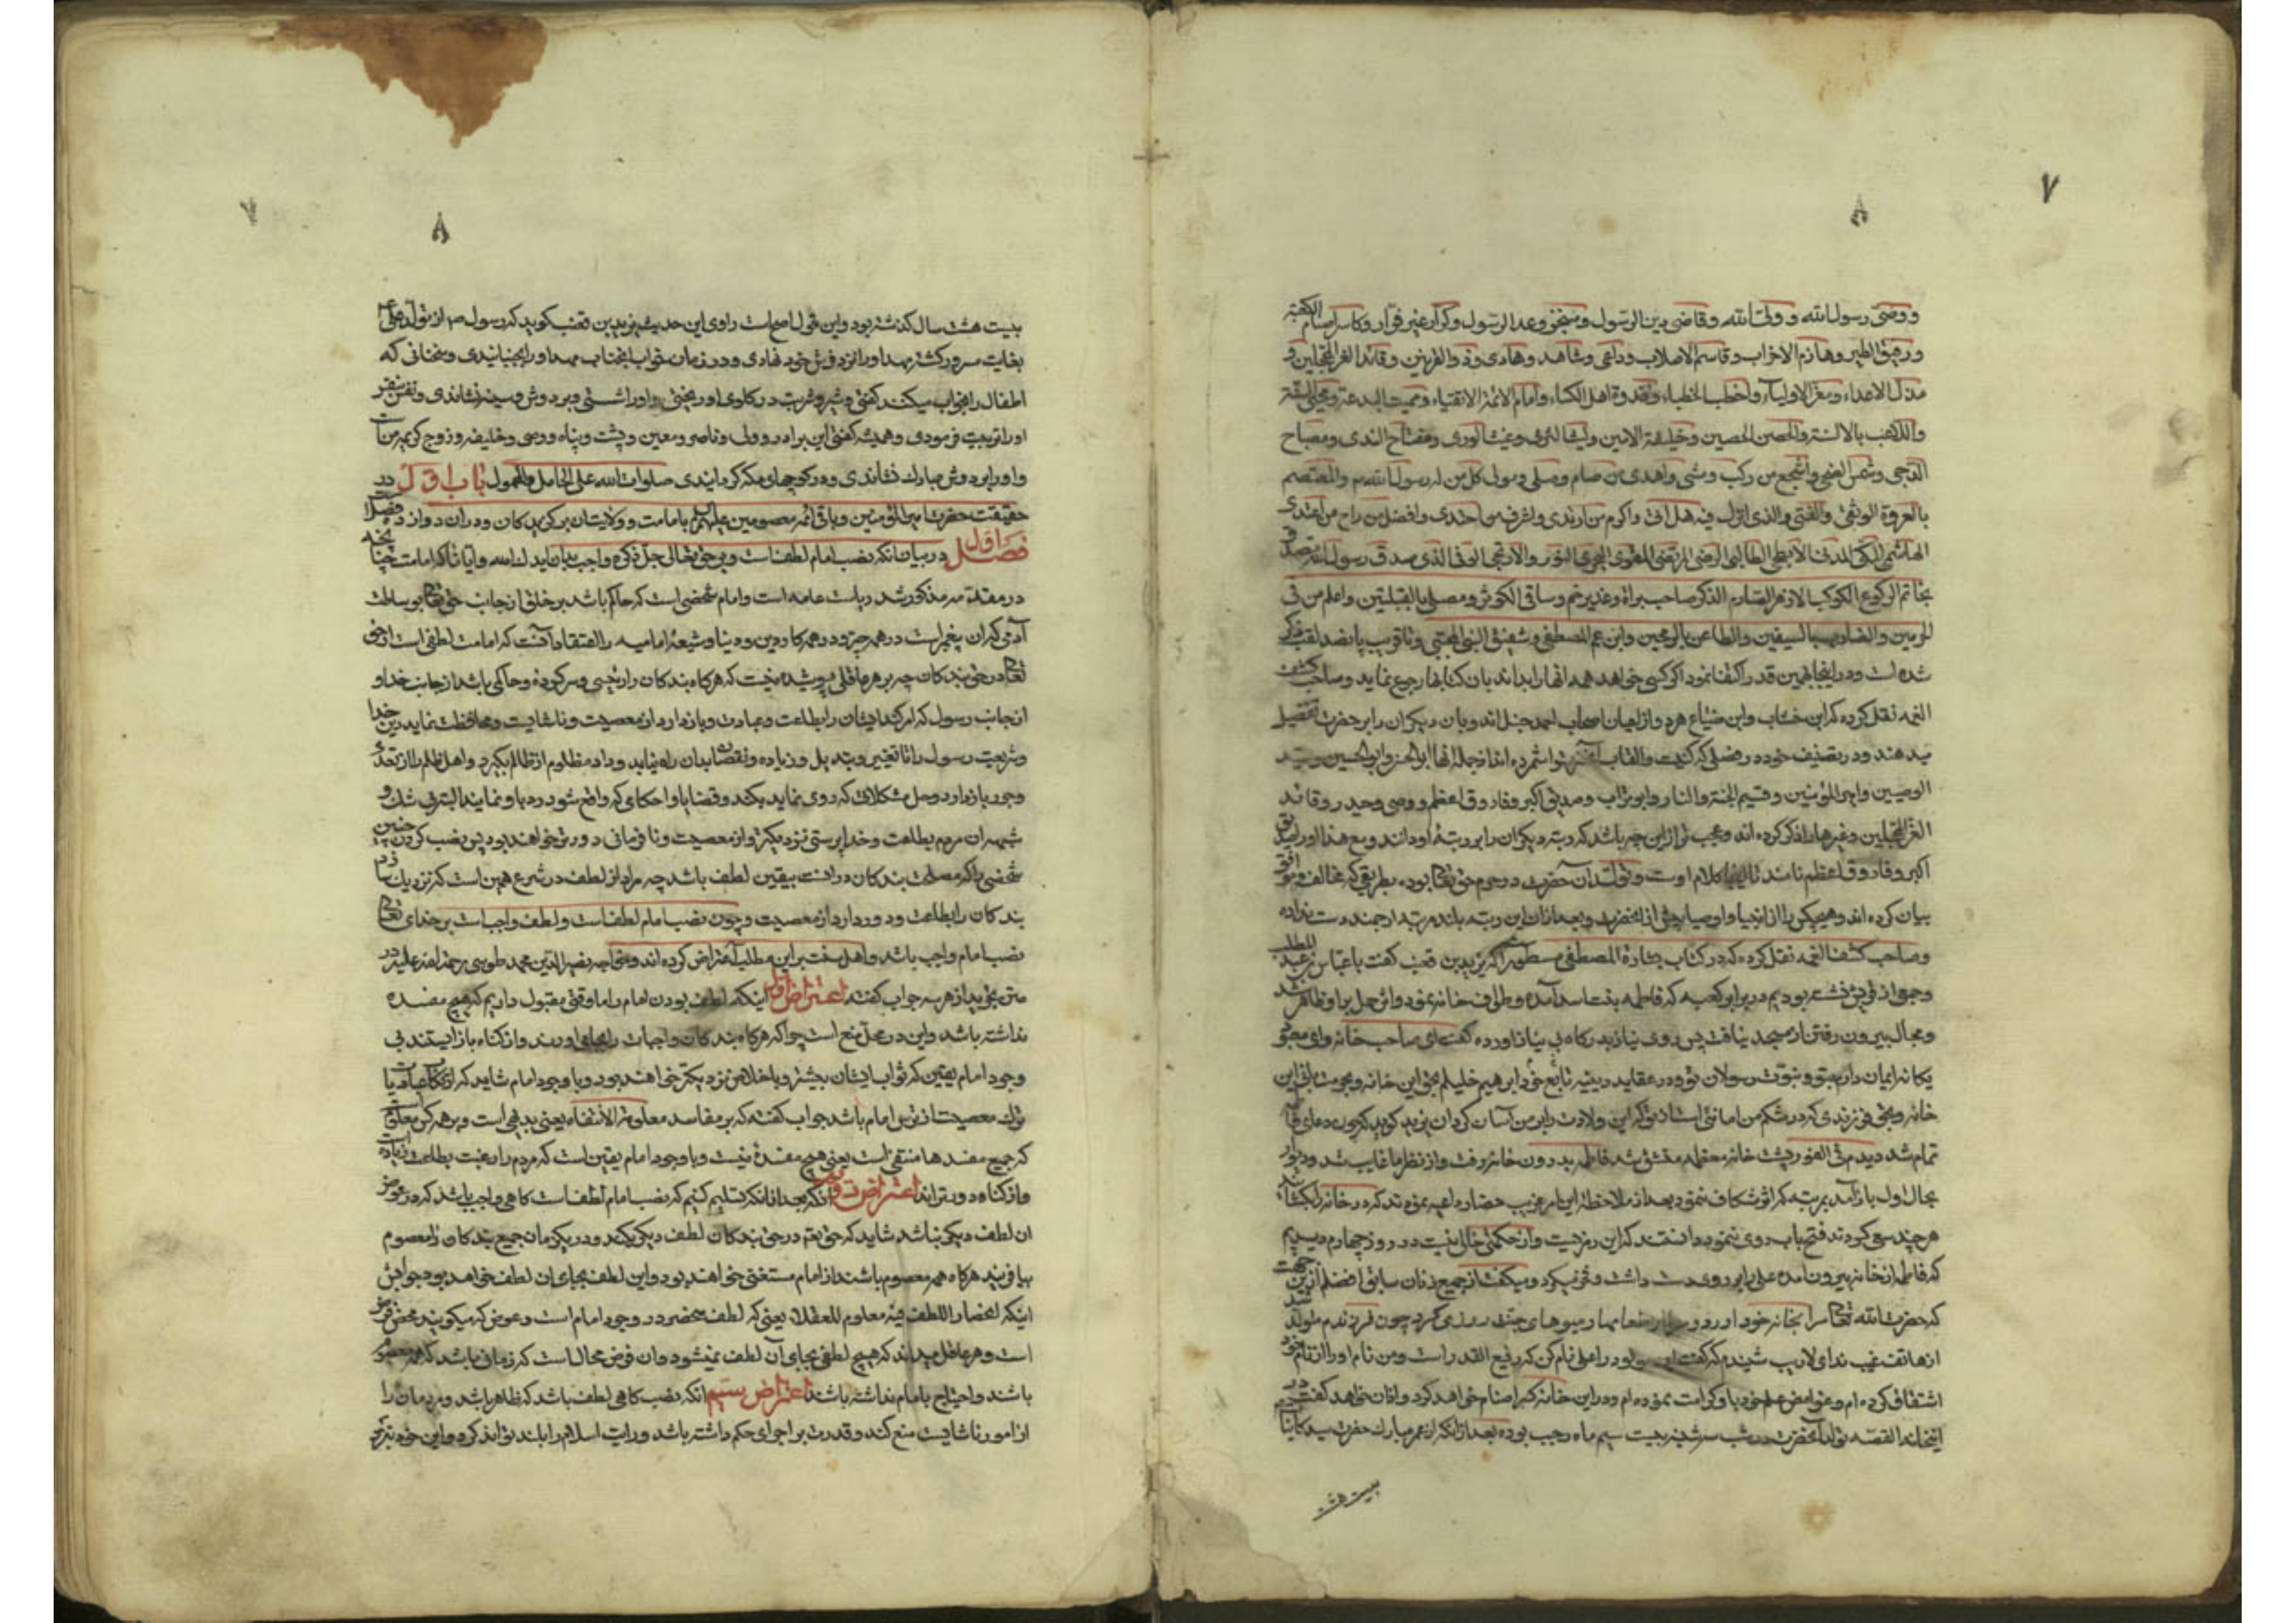 ۷
۸
ووصی رسول الله و ولی الله وقاضی دین الرسول ومنجز وعد الرسول وکرار غیر فرار وکاسر اصنام الکعبه
ورفیق الطیر وهازم الاحزاب وقاسم الاصلاب وداعی وشاهد وهادی وذو القرنین وقائد الغر المحجلین و
مذل الاعداء ومعز الاولیاء واخطب الخطباء وقدوة اهل الکساء وامام الائمة الاتقیاء وممیت البدعة ومحیی السنة
والحصن الحصین وخلیفة الامین ولیث الثری وغیث الوری ومفتاح الندی ومصباح
الدجی وشمس الضحی واشجع من رکب ومشی واهدی من صام وصلی ومولی کل من له رسول الله والمعتصم
بالعروة الوثقی والفتی والذی انزل فیه هل اتی واکرم من ارتدی واشرف من احتذی وافضل من راح من اغتدی
الهاشمی المکی المدنی الابطحی الطالبی الرضی المرتضی القوی الذی صدق رسول الله
بخاتم الرکوع الکوکب الازهر الصارم الذکر صاحب براة وغدیر خم وساقی الکوثر ومصلی القبلتین واعلم من فی
الحرمین والضارب بالسیفین والطاعن بالرمحین وابن عم المصطفی وشقیق النبی المجتبی وتا قریب پانصد لقب ذکر
شده است ودر اینجا بهمین قدر اکتفا نمود اگر کسی خواهد همه انها را بداند بان کتابها رجوع نماید وصاحب کشف
الغمه نقل کرده که ابن خشاب وابن از اعیان اصحاب احمد حنبل اند وبان دیکران را بر حضرت تفضیل
میدهند ودر تصنیف خود در فصلی که کنیت والقاب انحضرت را شمرده اند از جمله انها ابو الحسن وابو الحسین وسید
الوصیین وامیر المؤمنین وقسیم الجنة والنار وابو تراب وصدیق اکبر وفاروق اعظم ووصی وحیدر وقائد
الغر المحجلین وغیرها را ذکر کرده اند وعجب تر از این چه باشد که رتبه دیکران را بر رتبه او دانند ومع هذا او را صدیق
اکبر وفاروق اعظم نامند کلام اوست وتولد آن حضرت در حرم حق تعالی بوده بطریقی که مخالف وموافق
بیان کرده اند وهیچکس را از انبیا واوصیا پیش از انحضرت وبعد از ان این رتبه بلند مرتبه ارجمند دست نداده
وصاحب کشف الغمه نقل کرده که در کتاب بشارة المصطفی مسطور است که یزید بن قعنب کفت با عباس بن عبد المطلب
وجمعی از قریش نشسته بودیم در برابر کعبه که فاطمه بنت اسد آمده وطواف خانه نمود واثر حمل بر او ظاهر شد
ومجال بیرون رفتن از مسجد نیافت پس روی نیاز بدرگاه بی نیاز اورده کفت ای صاحب خانه وای معبود
یکانه ایمان دارم بتو وبنبوت رسولان تو ودر عقاید دینیه تابع جد خود ابرهیم خلیلم بحق این خانه وبحرمت بانی این
خانه وبحق فرزندی که در شکم من امانتی است از تو که این ولادت را بر من آسان کردان یزید کوید که چون دعای فاطمه
تمام شد دیدم فی الفور پشت خانه معظمه منشق شد فاطمه بدرون خانه رفت واز نظر ما غایب شد ودیوار
بحال اول باز آمد بمرتبه که اثر شکاف ننمود بعد از ملاحظه این امر غریب حضار داعیه نمودند که در خانه را بکشایند
هر چند سعی کردند فتح باب روی ننمود دانستند که این رمزیست واز حکمتی خالی نیست در روز چهارم دیدیم
که فاطمه از خانه بیرون آمده علی را بر روی دست داشت وفخر میکرد ومیکفت از جمیع زنان سابق افضلم از این جهت
که حضرت الله تعالی مرا بخانه خود اورد ومیوهای جنت روزی کرد چون فرزندم متولد شد
از هاتف غیب ندای لاریب شنیدم که کفت این مولود را علی نام کن که رفیع القدر است ومن نام او را از نام خود
اشتقاق کرده ام وغوامض علم خود باو کرامت نموده ام ودر این خانه کسر اصنام خواهد کرد واذان خواهد کفت در
اینخانه القصه تولد آنحضرت در شب سه شنبه بیست سیم ماه رجب بوده بعد از انکه از عمر مبارک حضرت سید کاینات
بیست هشت
۷
۸
بیست هشت سال کذشته بود واین قول اصح است راوی این حدیث یزید بن قعنب کوید که رسول ص از تولد علی ع
بغایت مسرور کشته مهد او را نزد فرش خود نهادی ودر زمان خواب انجناب مهد او را بجنبانیدی وسخنانی که
اطفال را بخواب میکند کفتی وشیر وشربت در کلوی او ریختی واو را شستی وبر دوش وسینه نشاندی وبنفس نفیس
او را تربیت فرمودی وهمیشه کفتی این برادر وولی وناصر ومعین وپشت وپناه ووصی وخلیفه وزوج کریمه من است
واو را بر دوش مبارک نشاندی ودر کوچهای مکه کردانیدی صلوات الله علی الحامل والمحمول باب اول در
حقیقت حضرت امیر المؤمنین وباقی ائمه معصومین علیهم السلام بامامت وولایتان بر بندکان ودر ان دوازده فصل است
فصل اول در بیان انکه نصب امام لطف است وبر حق تعالی جل ذکره واجب بدان ایدک الله وایانا که امامت چنانچه
در مقدمه مذکور شد ریاست عامه است وامام شخصی است که حاکم باشد بر خلق از جانب حق تعالی بوساطت
آدمی که ان پیغمبر است در همه چیز ودر همه کار دین ودنیا وشیعه امامیه را اعتقاد آنست که امامت لطفی است از حق
تعالی در حق بندکان چه بر هر عاقلی پوشیده نیست که هرکاه بندکان را رئیسی وسرکرده وحاکمی باشد از جانب خدا و
از جانب رسول که امر کند ایشان را بطاعت وعبادت وباز دارد از معصیت وناشایست ومحافظت نماید دین خدا
وشریعت رسول را تا تغییر وتبدیل وزیاده ونقصان بدان راه نیابد وداد مظلوم از ظالم بکیرد واهل ظلم را از تعدی
وجور باز دارد وحل مشکلاتی که روی نماید بکند وقضایا واحکامی که واقع شود رد باو نمایند البته بی شک و
شبهه ان مردم بطاعت وخدا پرستی نزدیکتر واز معصیت ونافرمانی دورتر خواهند بود پس نصب کردن چنین
شخصی را که مصلحت بندکان در انست بیقین لطف باشد چه مراد از لطف در شرع همین است که نزدیک سازد
بندکان را بطاعت ودور دارد از معصیت وچون نصب امام لطف است ولطف واجب است بر خدای تعالی
نصب امام واجب باشد واهل سنت بر این مطلب اعتراض کرده اند وخواجه نصیر الدین محمد طوسی رحمة الله علیه در
متن تجرید از هر سه جواب کفته اعتراض اول اینکه لطف بودن امام را ما وقتی مقبول داریم که هیچ مفسده
نداشته باشد واین در محل منع است چرا که هرکاه بندکان واجبات را بجای اورند واز کناه باز ایستند بی
وجود امام یقین که ثواب ایشان بیشتر وباخلاص نزدیکتر خواهند بود وبا وجود امام شاید که ارتکاب طاعت یا
ترک معصیت از ترس امام باشد جواب کفته که بر مفاسد معلومة الانتفاء یعنی بدیهی است وبر همه کس معلوم
که جمیع مفسدها منتفی است یعنی هیچ مفسده نیست وبا وجود امام یقین است که مردم را رغبت بطاعت زیاده است
واز کناه دورتر اند اعتراض دویم انکه بعد از انکه تسلیم کنیم که نصب امام لطف است کاهی واجب باشد که در عوض
ان لطف دیکر نباشد شاید که حق تعالی در حق بندکان لطف دیکر بکند ودر یک زمان جمیع بندکان را معصوم
بیافریند هرکاه همه معصوم باشند از امام مستغنی خواهند بود واین لطف بجای ان لطف خواهد بود جوابش
اینکه انحصار اللطف فیه معلوم للعقلاء یعنی که لطف منحصر در وجود امام است وعوض که میکویند محض فرض
است وهر عاقل میداند که هیچ لطفی بجای آن لطف نمیشود وان فرض محال است که زمانی باشد که همه معصوم
باشند واحتیاج بامام نداشته باشند اعتراض سیم انکه نصب کاهی لطف باشد که ظاهر باشد ومردمان را
از امور ناشایست منع کند وقدرت بر اجرای حکم داشته باشد ورایت اسلام را بلند تواند کرد واین خود نزد